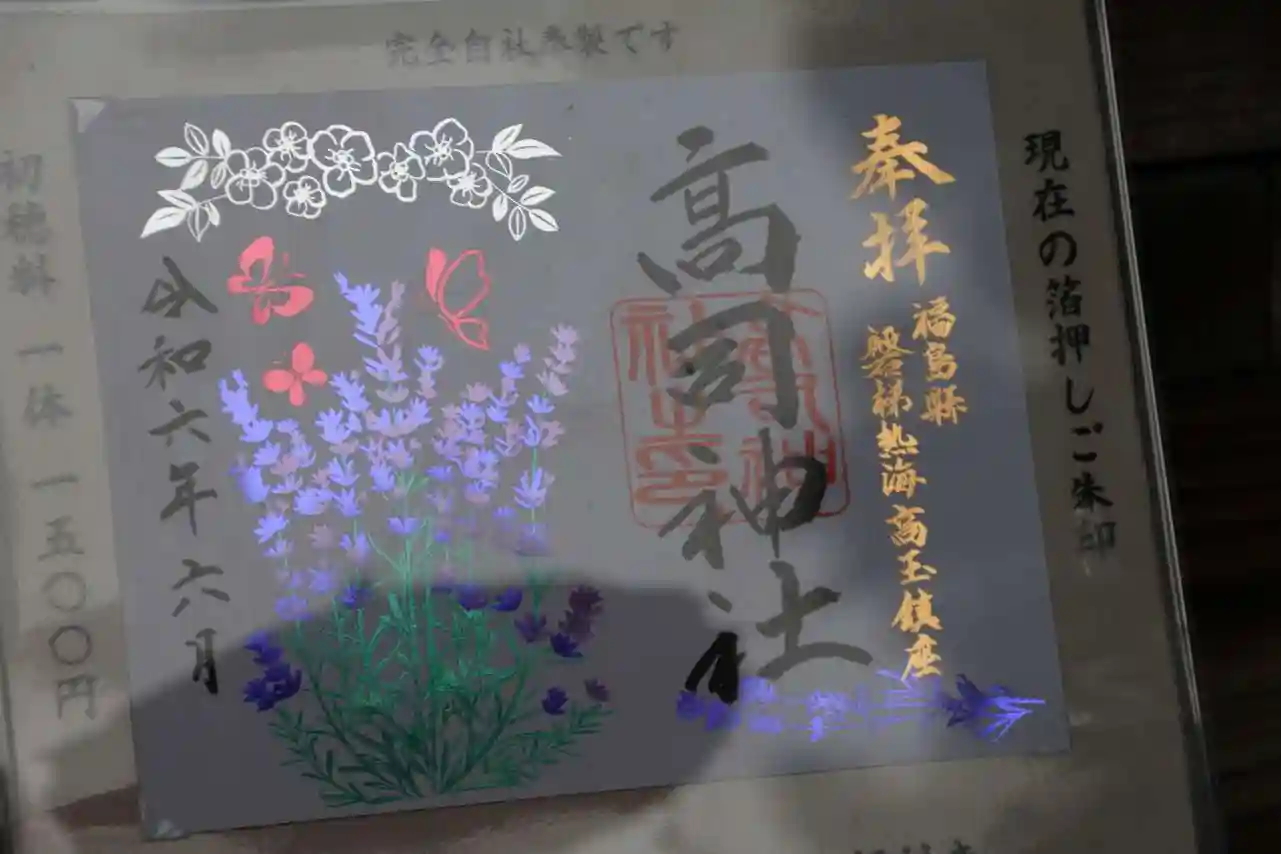 完全自社奉製です
現在の箔押しご朱印
奉拝
福島縣
磐梯熱海高玉鎮座
高司神社
令和六年六月
初穂料 一体 一五〇〇円